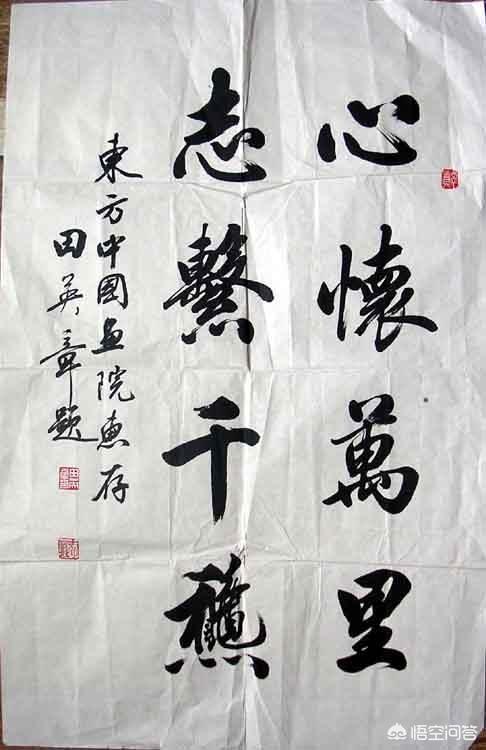 心懷萬里
志繫千龝
東方中國畫院惠存
田英章題
悟空问答